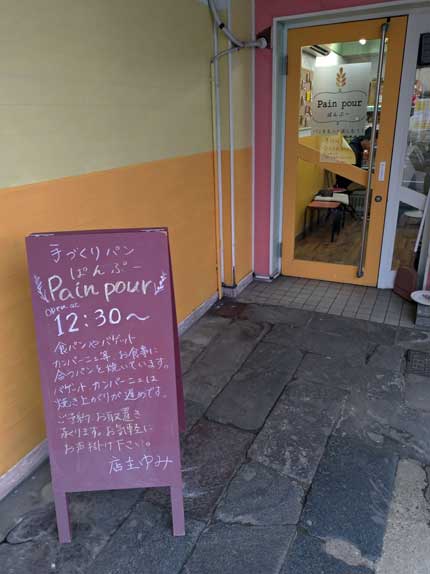 手づくりパン
ぱんぷー
Pain pour
OPEN at
12:30～
食パンやバゲット
カンパーニュ等、お食事に
合うパンを焼いています。
バゲット カンパーニュは
焼き上がりが遅めです。
ご予約、お取置き
承ります。お気軽に
お声掛け下さい。
店主ゆみ
Pain pour
ぱんぷー